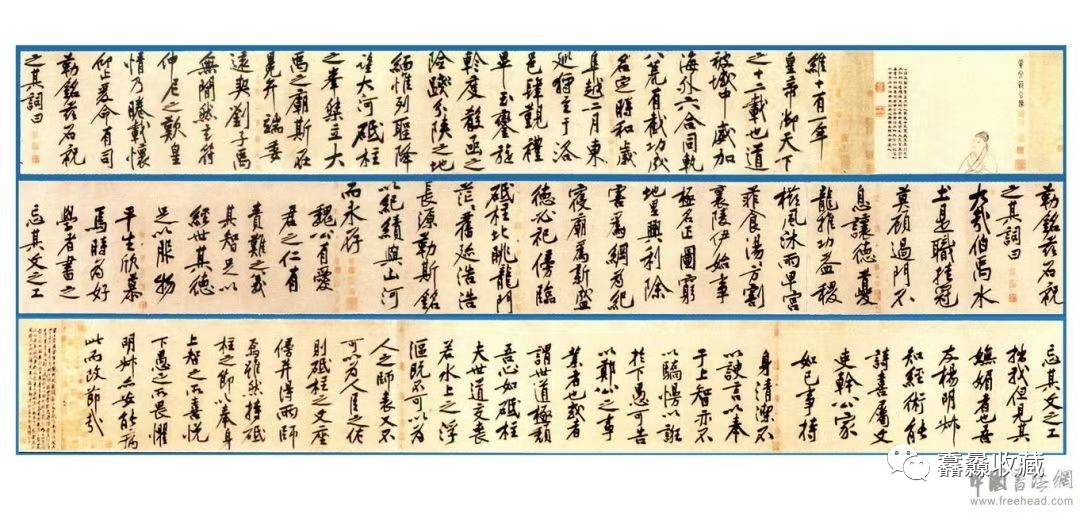 維十有一年
皇帝御天下
之十二載也道
被域中威加
海外六合同軌
八荒有截功成
名定時和歲
阜越二月東
巡狩至于洛
邑肆觀禮
畢玉鑾旋
軫度殽函之
險踐分陝之地
緬惟列聖降
望大河砥柱
之峯桀立大
禹之廟斯在
冕弁端委
遠契劉子禹
無間然玄符
仲尼之歎皇
情乃睠載懷
仰止爰命有司
勒銘茲石祝
之其詞曰
勒銘茲石祝
之其詞曰
大哉伯禹水
土是職挂冠
莫顧過門不
息讓德夔
龍推功益稷
櫛風沐雨卑宮
菲食湯方割
襄陵伊始事
極名正圖窮
地里興利除
害為綱為紀
寢廟為新盛
德必祀傍臨
砥柱北眺龍門
茫茫舊迹浩浩
長源勒斯銘
以紀績與山河
而永存
魏公有愛
君之仁有
責難之義
其智足以
經世其德
足以服物
平生欣慕
焉時為好
學者書之
忘其文之工
忘其文之工
拙我但見其
嫵媚者也吾
友楊明叔
知經術能
詩喜屬文
吏幹公家
如己事持
身清潔不
以諛言以奉
于上智亦不
以驕慢以誑
於下愚可告
以鄭公之事
業者也或者
謂世道極頹
吾心如砥柱
夫世道交喪
若水上之浮
漚既不可以為
人之師表又不
可以為人臣之佐
則砥柱之文座
傍并得兩師
焉雖然持砥
柱之節以奉身
上智之所喜悅
下愚之所畏懼
明叔亦安能病
此而改節哉
羴鱻收藏
中國書法網
www.freehead.com